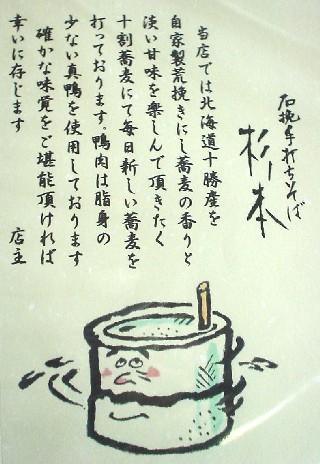 石挽手打ちそば
杉本
当店では北海道十勝産を
自家製荒挽きにし蕎麦の香りと
淡い甘味を楽しんで頂きたく
十割蕎麦にて毎日新しい蕎麦を
打っております。鴨肉は脂身の
少ない真鴨を使用しております
確かな味覚をご堪能頂ければ
幸いに存じます
店主